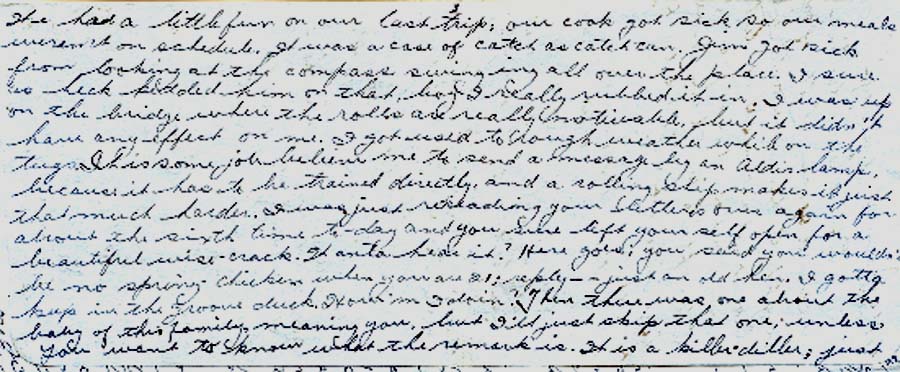 We had a little fun on our last trip; our cook got sick so our meals
weren't on schedule. It was a case of catch as catch can. Jim got sick
from looking at the compass swinging all over the place. I sure
as heck kidded him on that, boy I really rubbed it in. I was up
on the bridge where the rolls are really noticable, but it didn't
have any effect on me. I got used to rough weather while on the
tugs. This is some job believe me to send a message by an Aldis lamp,
because it has to be trained directly, and a rolling ship makes it just
that much harder. I was just rereading your letters over again for
about the sixth time to-day and you sure left yourself open for a
beautiful wise-crack. Wanta hear it? Here goes; you said you wouldn't
be no spring chicken when you are 21; reply — just an old hen. I gotta
keep in the groove duck. How'm I doin? Then there was one about the
baby of the family, meaning you, but I'll just skip that one; unless
you want to know what the remark is. It is a killer-diller; just